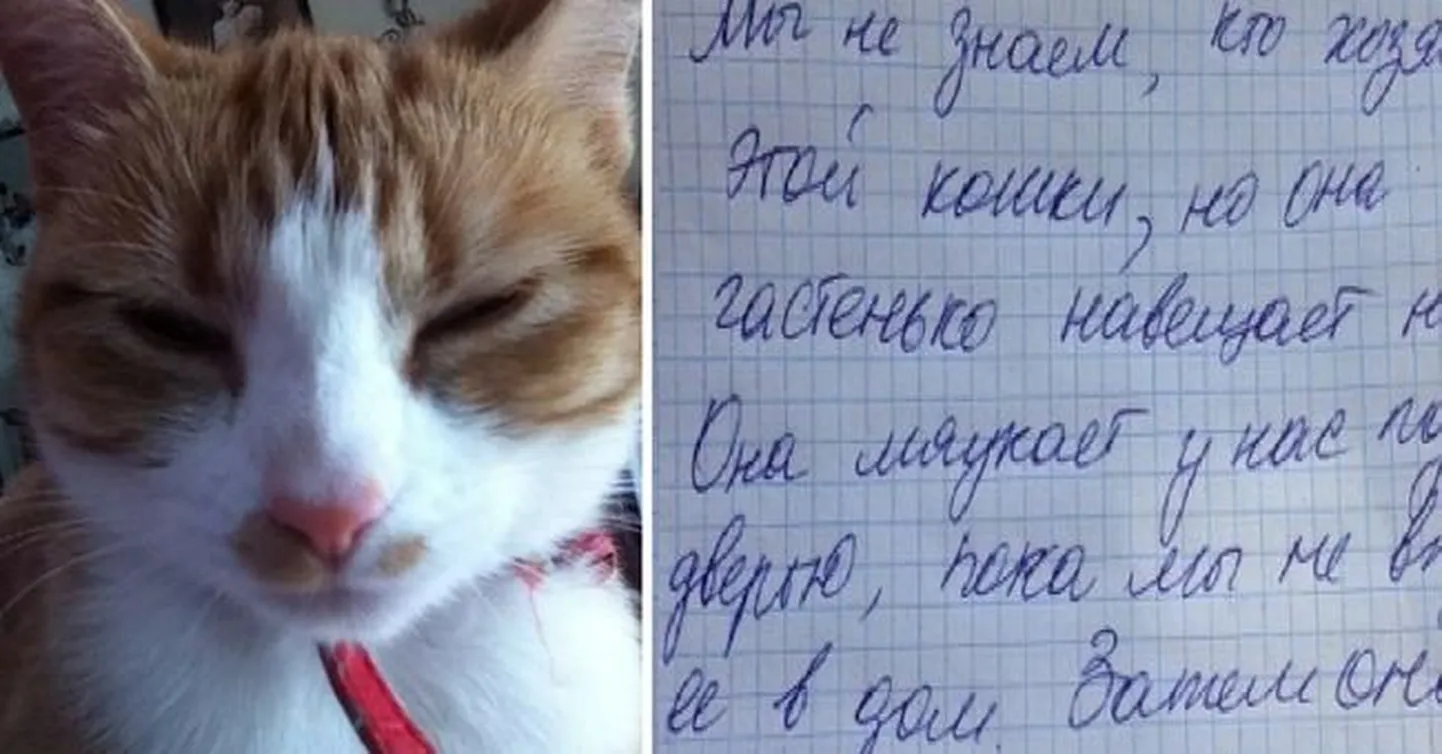 Мы не знаем, кто хозя
этой кошки, но она
частенько навещает н
Она мяукает у нас по
дверью, пока мы не вп
ее в дом. Затем она